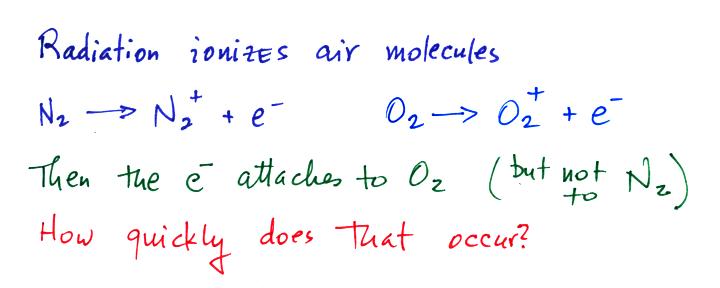 Radiation ionizes air molecules
N₂ → N₂⁺ + e⁻ O₂ → O₂⁺ + e⁻
Then the e⁻ attaches to O₂ (but not to N₂)
How quickly does that occur?